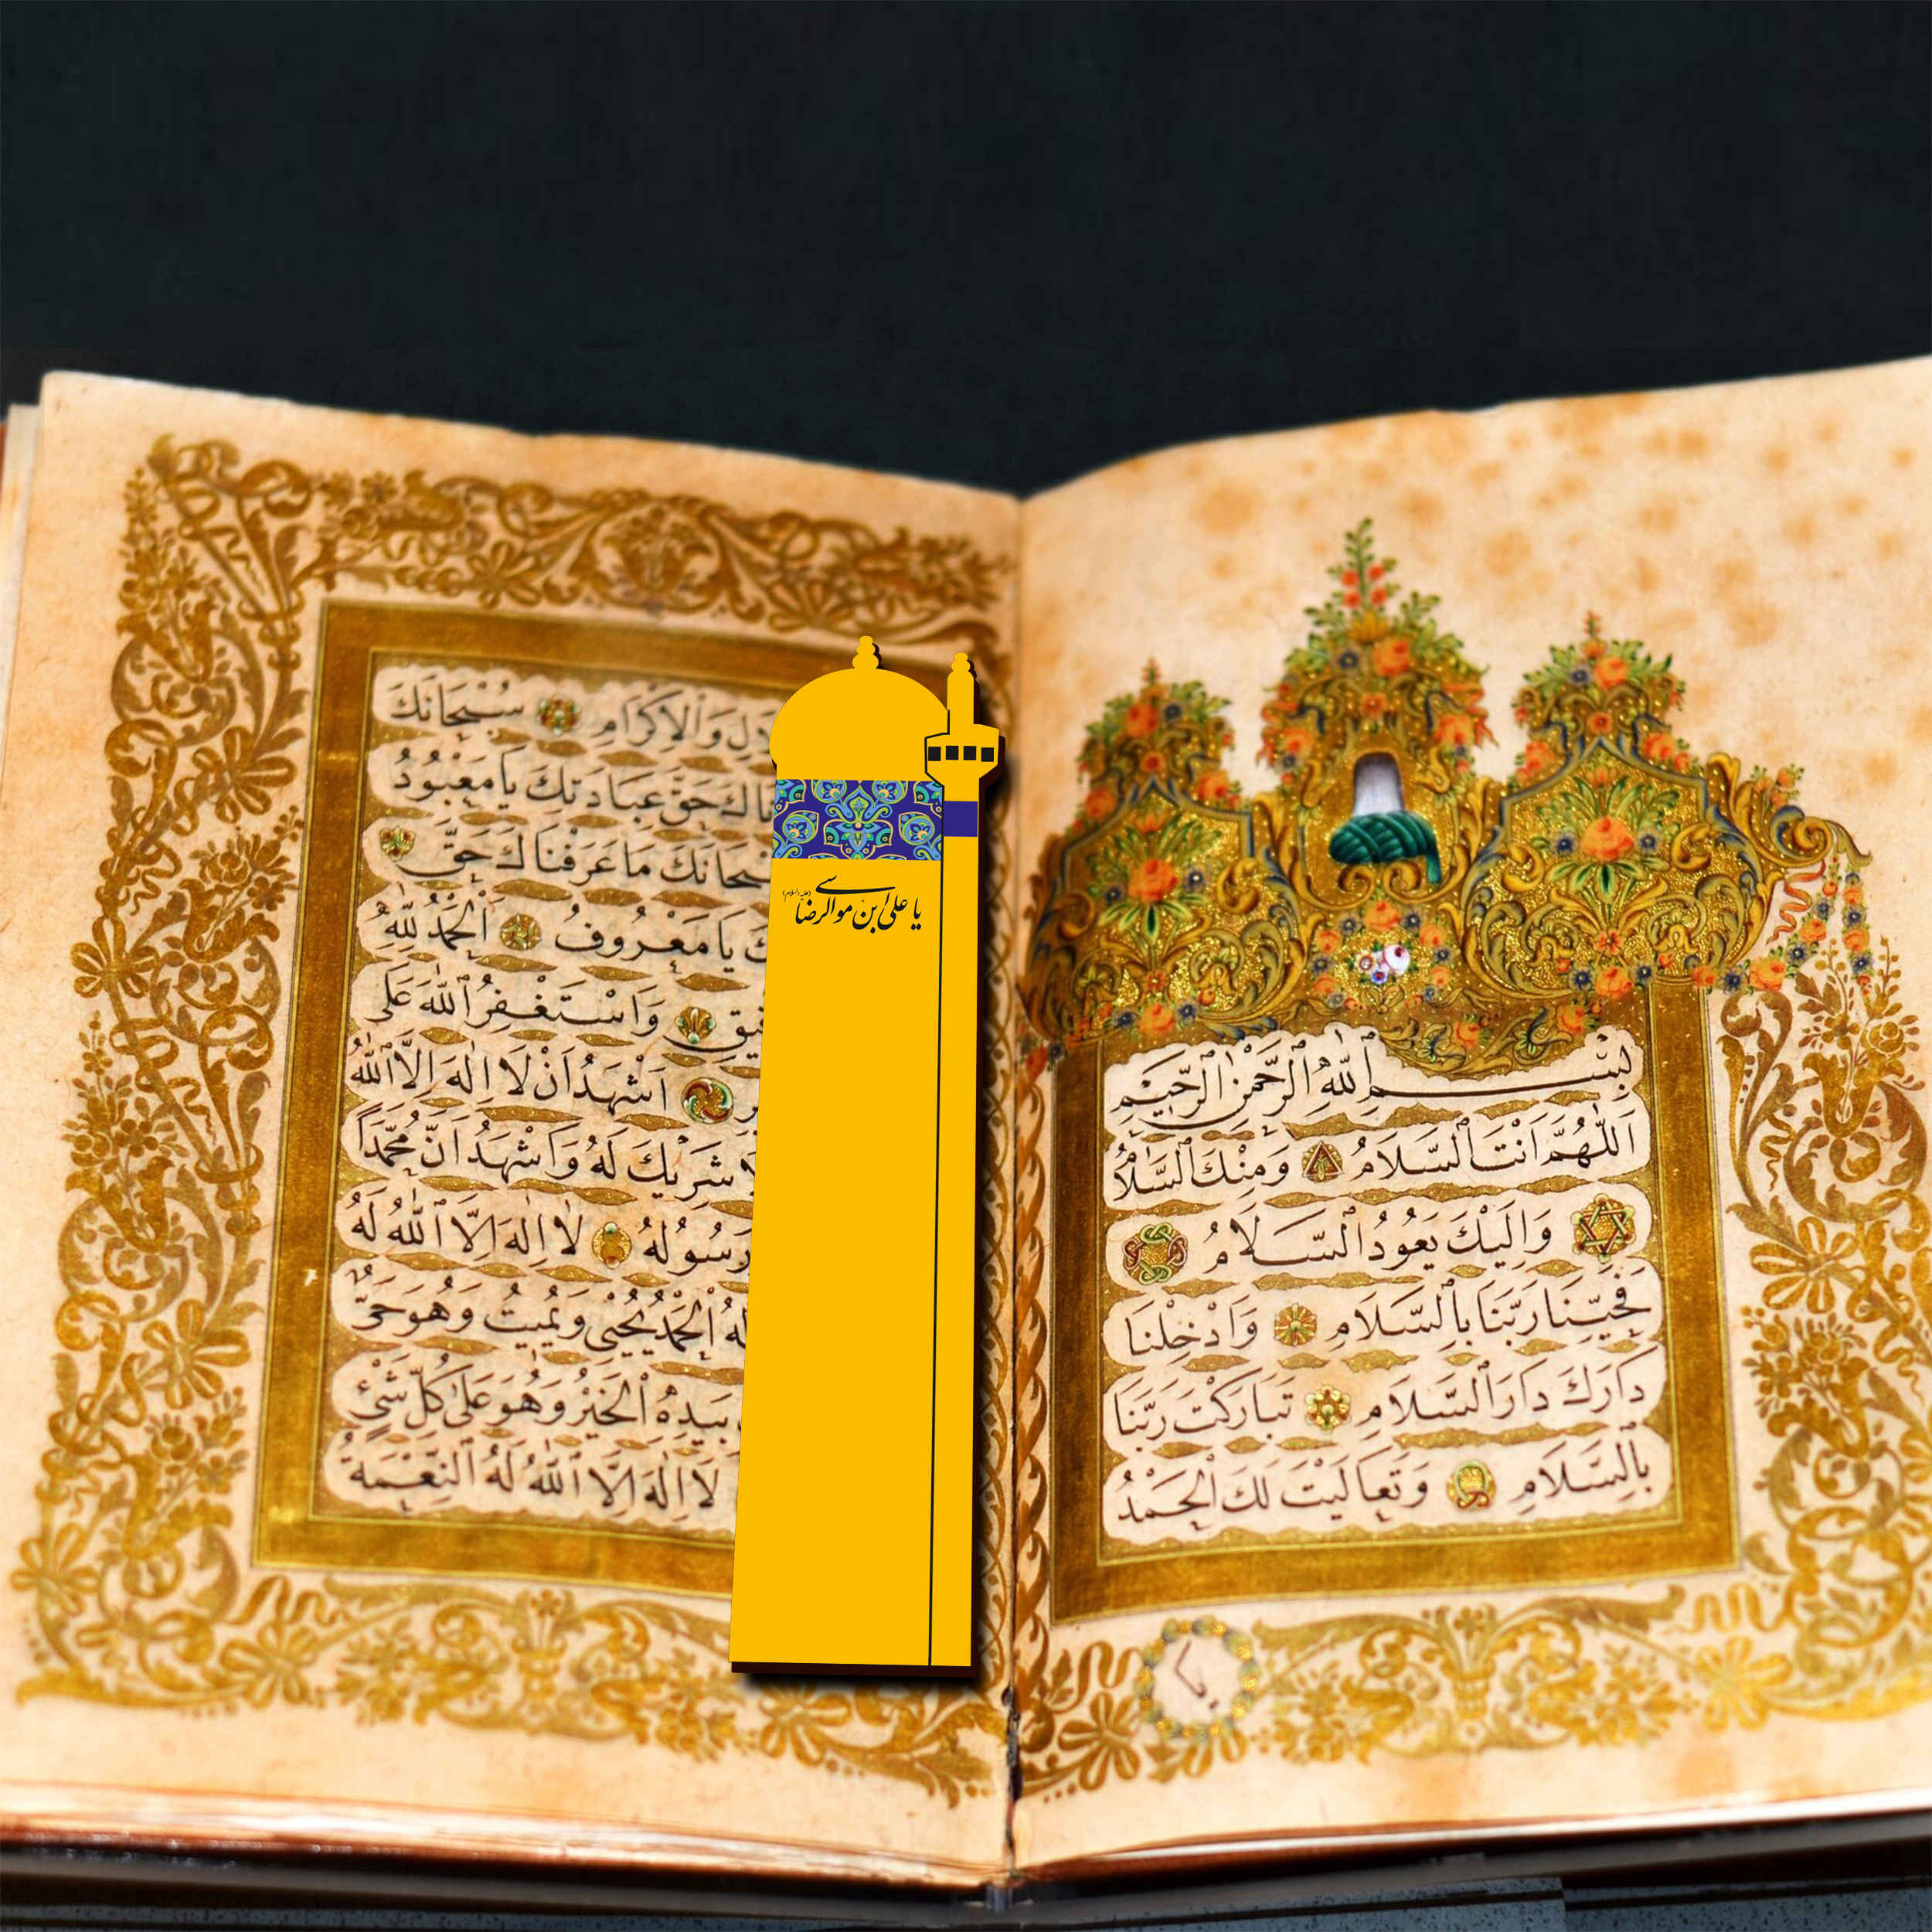 بِسْــــمِ اللّٰهِ الرَّحْمٰنِ الرَّحِيْمِ
اَللّٰهُمَّ اَنْتَ السَّلَامُ وَمِنْكَ السَّلَامُ
وَاِلَيْكَ يَعُودُ السَّلَامُ
فَحَيِّنَا رَبَّنَا بِالسَّلَامِ وَادْخِلْنَا
دَارَكَ دَارَ السَّلَامِ تَبَارَكْتَ رَبَّنَا
بِالسَّلَامِ وَتَعَالَيْتَ لَكَ الْحَمْدُ
وَالْاِكْرَامِ سُبْحَانَكَ
حَقَّ عِبَادَتِكَ يَا مَعْبُودُ
مَاعَرَفْنَاكَ حَقَّ
يَا مَعْرُوفُ اَلْحَمْدُ لِلّٰهِ
وَاَسْتَغْفِرُ اللّٰهَ عَلٰى
اَشْهَدُ اَنْ لَا اِلٰهَ اِلَّا اللّٰهُ
شَرِيكَ لَهُ وَاَشْهَدُ اَنَّ مُحَمَّدًا
لَا اِلٰهَ اِلَّا اللّٰهُ لَهُ
الْحَمْدُ يُحْيِى وَيُمِيتُ وَهُوَ حَىٌّ
بِيَدِهِ الْخَيْرُ وَهُوَ عَلٰى كُلِّ شَىْءٍ
لَا اِلٰهَ اِلَّا اللّٰهُ لَهُ النِّعْمَةُ
یا علی ابن موسی الرضا (علیه السلام)